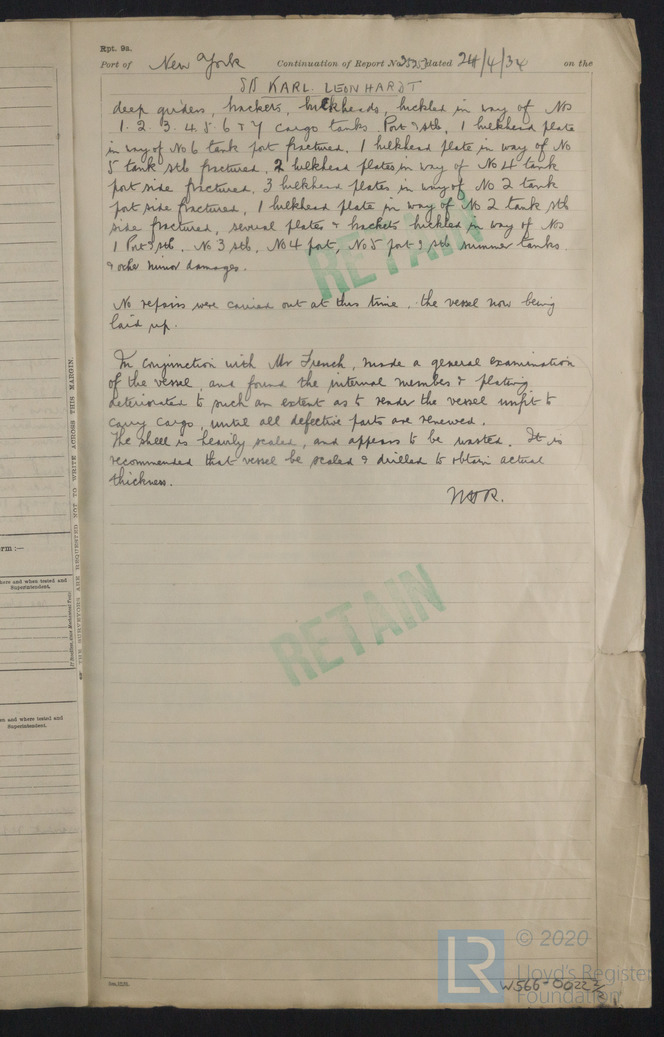 Rpt. 9a.
Port of New York Continuation of Report No. dated 24/4/34 on the
SS KARL LEONHARDT
deep girders, brackets, bulkheads, buckled in way of Nos
1. 2. 3. 4. 5. 6 & 7 cargo tanks Port & stb, 1 bulkhead plate
in way of No 6 tank port fractured, 1 bulkhead plate in way of No
5 tank stb fractured, 2 bulkhead plates in way of No 4 tank
port side fractured, 3 bulkhead plates in way of No 2 tank
port side fractured, 1 bulkhead plate in way of No 2 tank stb
side fractured, several plates & brackets buckled in way of Nos
1 Port & stb, No 3 stb, No 4 port, No 5 port & stb summer tanks
& other minor damages.
RETAIN
No repairs were carried out at this time. the vessel now being
laid up.
In conjunction with Mr French, made a general examination
of the vessel, and found the internal members & plating
deteriorated to such an extent as to render the vessel unfit to
carry cargo, until all defective parts are renewed.
The shell is heavily scaled, and appears to be wasted. It is
recommended that vessel be scaled & drilled to obtain actual
thickness.
RETAIN
THE SURVEYORS ARE REQUESTED NOT TO WRITE ACROSS THIS MARGIN.
rm :—
here and when tested and
Superintendent.
en and where tested and
Superintendent.
LR
© 2020
Lloyd's Register
Foundation
W566-0022